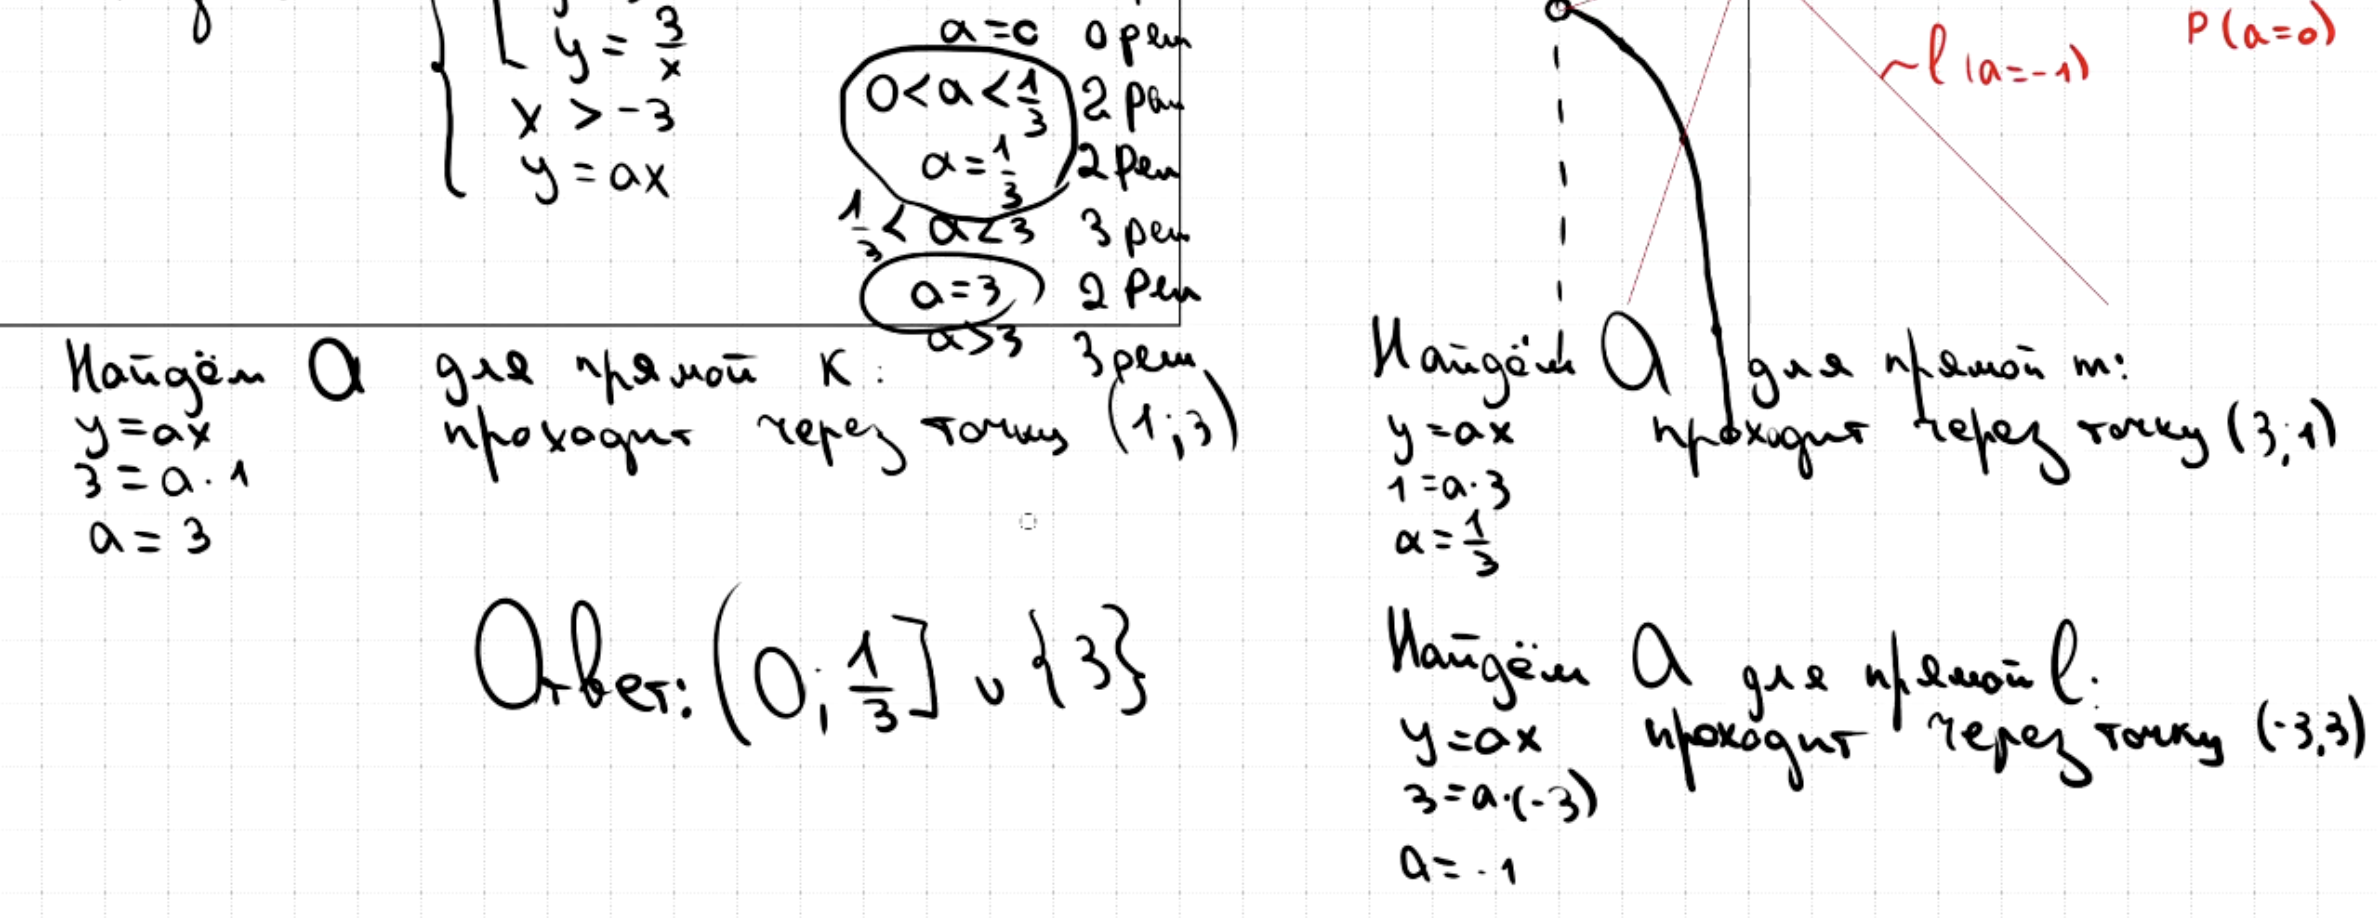 y = 3/x
x > -3
y = ax
a = 0 0 реш
0 < a < 1/3 2 реш
a = 1/3 2 реш
1/3 < a < 3 3 реш
a = 3 2 реш
a > 3 3 реш
l (a = -1)
P (a = 0)
Найдём a для прямой k:
y = ax проходит через точку (1; 3)
3 = a · 1
a = 3
Ответ: (0; 1/3] ∪ {3}
Найдём a для прямой m:
y = ax проходит через точку (3; 1)
1 = a · 3
a = 1/3
Найдём a для прямой l:
y = ax проходит через точку (-3; 3)
3 = a · (-3)
a = -1